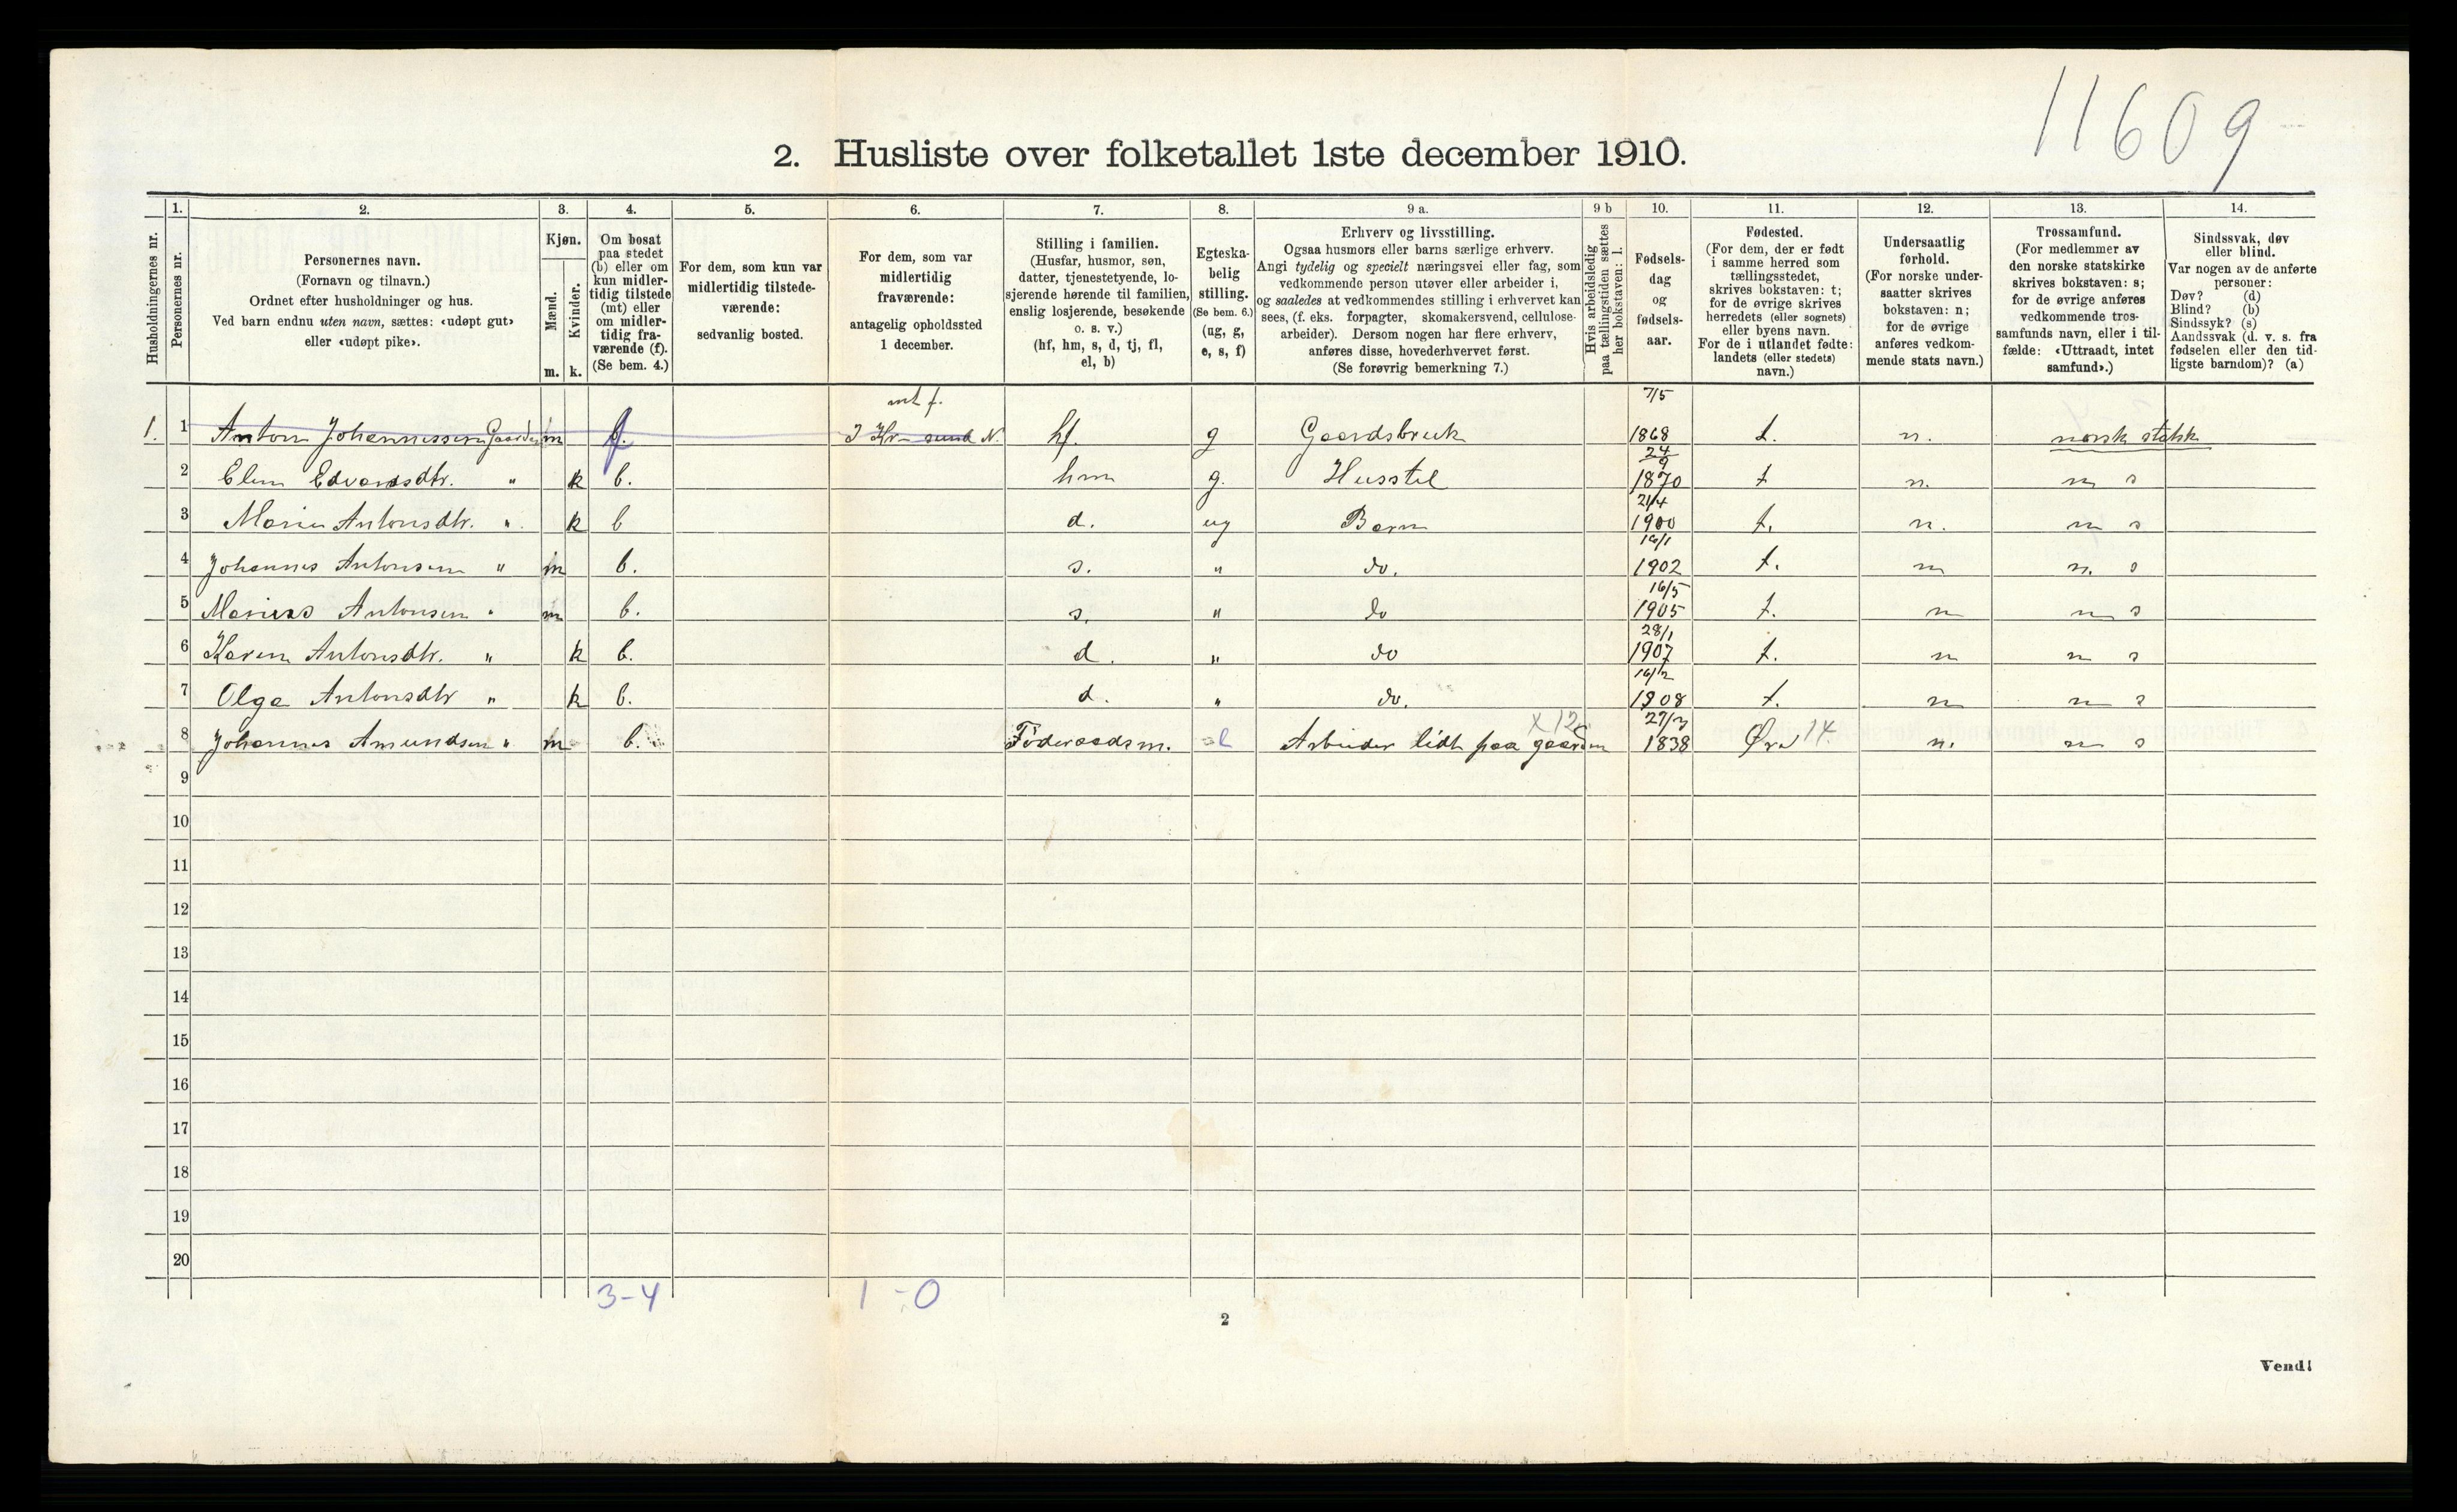 11609
2. Husliste over folketallet 1ste december 1910.
Husholdningernes nr.
1. Personernes nr.
2. Personernes navn.
(Fornavn og tilnavn.)
Ordnet efter husholdninger og hus.
Ved barn endnu uten navn, sættes: «udøpt gut»
eller «udøpt pike».
3. Kjøn.
Mænd. Kvinder.
m. k.
4. Om bosat
paa stedet
(b) eller om
kun midler-
tidig tilstede
(mt) eller
om midler-
tidig fra-
værende (f).
(Se bem. 4.)
5. For dem, som kun var
midlertidig tilstede-
værende:
sedvanlig bosted.
6. For dem, som var
midlertidig
fraværende:
antagelig opholdssted
1 december.
7. Stilling i familien.
(Husfar, husmor, søn,
datter, tjenestetyende, lo-
sjerende hørende til familien,
enslig losjerende, besøkende
o. s. v.)
(hf, hm, s, d, tj, fl,
el, b)
8. Egteska-
belig
stilling.
(Se bem. 6.)
(ug, g,
e, s, f)
9 a. Erhverv og livsstilling.
Ogsaa husmors eller barns særlige erhverv.
Angi tydelig og specielt næringsvei eller fag, som
vedkommende person utøver eller arbeider i,
og saaledes at vedkommendes stilling i erhvervet kan
sees, (f. eks. forpagter, skomakersvend, cellulose-
arbeider). Dersom nogen har flere erhverv,
anføres disse, hovederhvervet først.
(Se forøvrig bemerkning 7.)
9 b Hvis arbeidsledig
paa tællingstiden sættes
her bokstaven: l.
10. Fødsels-
dag
og
fødsels-
aar.
11. Fødested.
(For dem, der er født
i samme herred som
tællingsstedet,
skrives bokstaven: t;
for de øvrige skrives
herredets (eller sognets)
eller byens navn.
For de i utlandet fødte:
landets (eller stedets)
navn.)
12. Undersaatlig
forhold.
(For norske under-
saatter skrives
bokstaven: n;
for de øvrige
anføres vedkom-
mende stats navn.)
13. Trossamfund.
(For medlemmer av
den norske statskirke
skrives bokstaven: s;
for de øvrige anføres
vedkommende tros-
samfunds navn, eller i til-
fælde: «Uttraadt, intet
samfund».)
14. Sindssvak, døv
eller blind.
Var nogen av de anførte
personer:
Døv? (d)
Blind? (b)
Sindssyk? (s)
Aandssvak (d. v. s. fra
fødselen eller den tid-
ligste barndom)? (a)
mt f. 7/5
1. 1 Anton Johannessen Gaarden m f. I Kr-sund N. hf. g Gaardsbruk 1868 t. n. norsk statsk
24/9
2 Elen Edvardsdtr. " k b. hm g. Husstel 1870 t n. n s
21/4
3 Marie Antonsdtr. " k b d. ug Barn 1900 t. n. n s
16/1
4 Johannes Antonsen " m b. s. " do. 1902 t. n n. s
16/5
5 Marius Antonsen " m b. s. " do 1905 t. n n s
28/1
6 Karen Antonsdtr. " k b. d. " do 1907 t. n n s
16/12
7 Olga Antonsdtr " k b. d. " do. 1908 t. n n s
8 Johannes Amundsen " m b. Føderaadsm. Arbeider lidt paa gaarden 1838 Øre 14 n. n s
9
10
11
12
13
14
15
16
17
18
19
20
3-4 1-0
2
Vend!